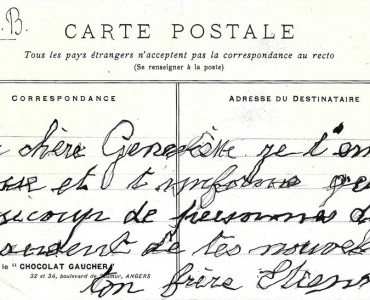 .B.
CARTE POSTALE
Tous les pays étrangers n'acceptent pas la correspondance au recto
(Se renseigner à la poste)
CORRESPONDANCE
ADRESSE DU DESTINATAIRE
chère Geneviève je t'em
sse et t'informe que
aucoup de personnes de
andent de tes nouvel
le "CHOCOLAT GAUCHER"
32 et 34, boulevard de Saumur, ANGERS
ton frère Etienn